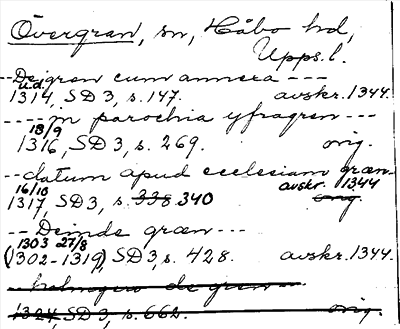 Övergran, sn, Håbo hd,
Upps. l.
-- De gren cum annexa ---
u.d.
1314, SD 3, s. 147. avskr. 1344.
---- in parochia yfragren ---
18/9
1316, SD 3, s. 269. orig.
-- datum apud ecclesiam græn --
16/10 avskr. 1344
1317, SD 3, s. 338. 340 orig.
-- Deinde græn ---
1303 27/8
(1302-1319), SD 3, s. 428. avskr. 1344.
-- holmgero de gren --
1324, SD 3, s. 662. orig.